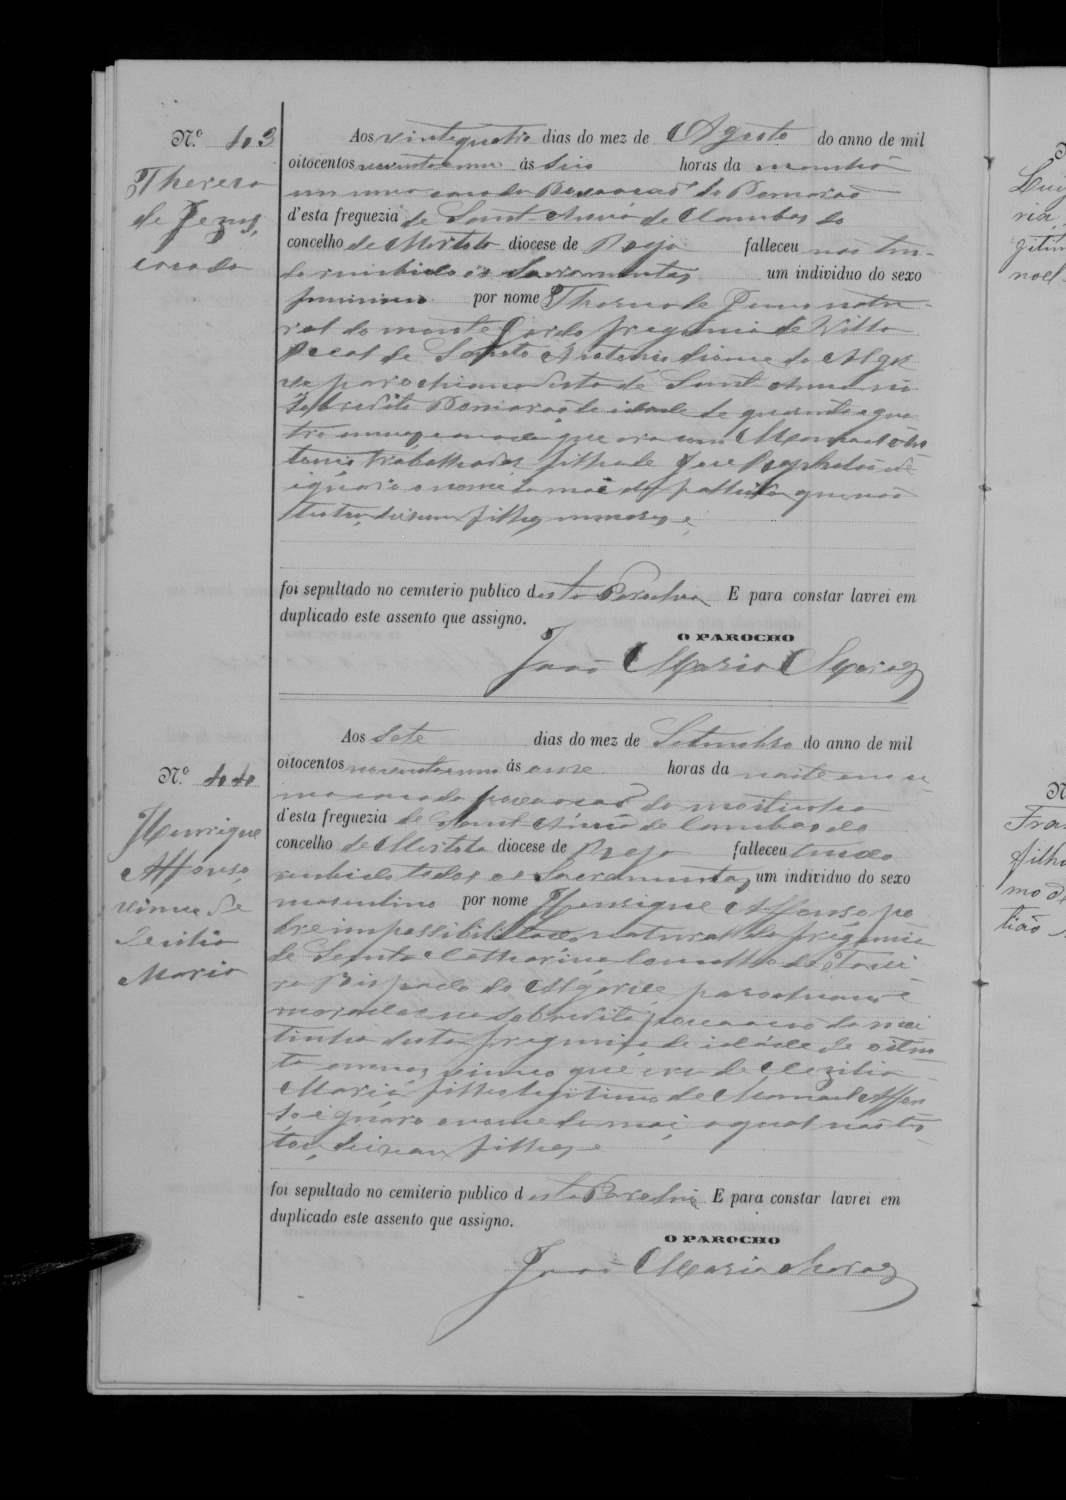 Nº 403
Thereza
de Jezus,
casada
Aos vintequatro dias do mez de Agosto do anno de mil
oitocentos noventa e um ás seis horas da manhã
em uma casa da Povoação do Pomarão
d'esta freguezia de Sant'Anna de Cambas do
concelho de Mertola diocese de Beja falleceu não ten-
do recebido os Sacramentos um individuo do sexo
feminino por nome Thereza de Jezus natu-
ral do monte freguezia de Villa
Real de Santo Antonio diocese do Algar-
ve parochiana desta de Sant'Anna
sobredito Pomarão de idade de quarenta e qua-
tro annos, casada que era com Manoel An-
tonio trabalhador filha de José
ignoro o nome da mãe da fallecida que não
testou, deixou filhos menores, e
foi sepultado no cemiterio publico desta Parochia E para constar lavrei em
duplicado este assento que assigno.
O PAROCHO
João Maria
Nº 404
Henrique
Affonso,
viuvo de
Cecilia
Maria
Aos sete dias do mez de Setembro do anno de mil
oitocentos noventa e um ás onze horas da noite em u-
ma casa da povoação da
d'esta freguezia de Sant'Anna de Cambas do
concelho de Mertola diocese de Beja falleceu tendo
recebido todos os Sacramentos um individuo do sexo
masculino por nome Henrique Affonso, po-
bre impossibilitado, natural da freguezia
de Santa Catharina concelho de Tavi-
ra Bispado do Algarve, parochiano e
morador na sobredita povoação da
desta freguezia, de idade de oiten-
ta annos, viuvo que era de Cezilia
Maria, filho legitimo de Manoel Affon-
so, ignoro o nome da mãe, o qual não tes-
tou, deixou filhos, e
foi sepultado no cemiterio publico desta Parochia E para constar lavrei em
duplicado este assento que assigno.
O PAROCHO
João Maria